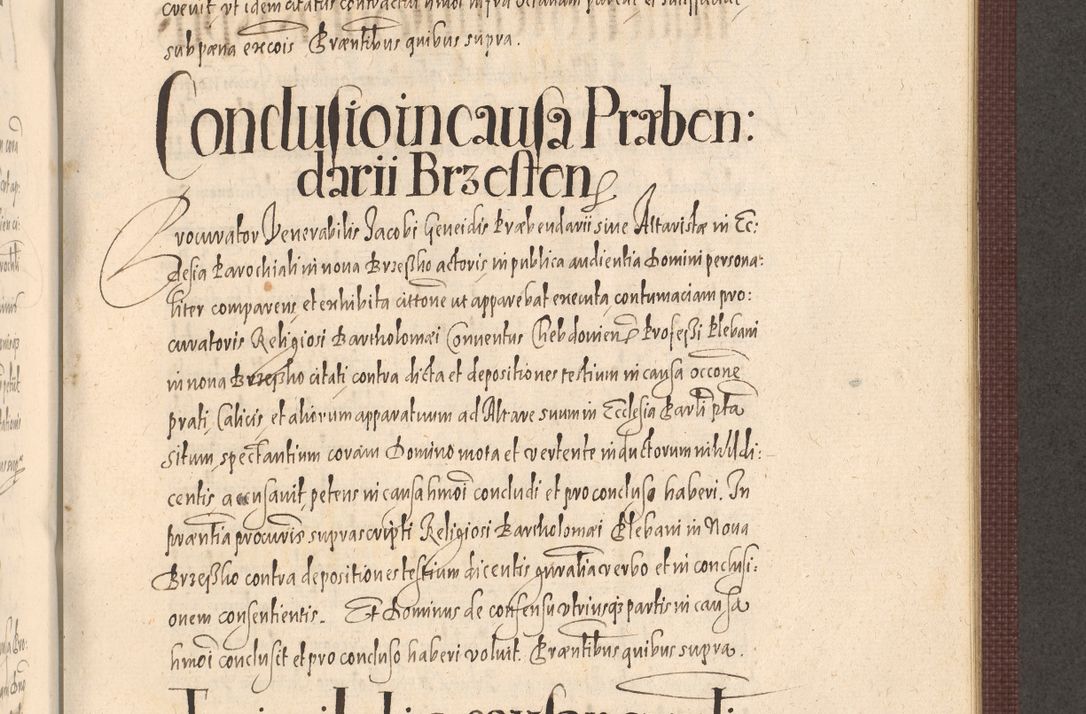 subpæna excois Præntibus quibus supra.
Conclusio in causa Præben:
darii Brzesten
Procurator Venerabilis Jacobi Geneidis Præbendarii sive Altaristæ in Ec:
clesia Parochiali in nova Brzesko actoris in publica audientia Domini persona:
liter comparens et exhibita cittone ut apparebat executa contumaciam pro:
curatoris Religiosi Bartholomæi Conventus Chebdovien Professi Plebani
in nova Brzesko citati contra dicta et depositiones testium in causa occone
prati, Calicis et aliorum apparatuum ad Altare suum in Ecclesia Parli pta
situm spectantium coram Domino mota et vertente inductorum nihil di:
centis accusavit petens in causa hmoi concludi et pro concluso haberi. In
præntia procuris suprascripti Religiosi Bartholomæi Plebani in Nova
Brzesko contra depositiones testium dicentis gnralia verbo et in conclusi:
onem consentientis. Et Dominus de consensu utriusq partis in causa
hmoi conclusit et pro concluso haberi voluit. Præntibus quibus supra.